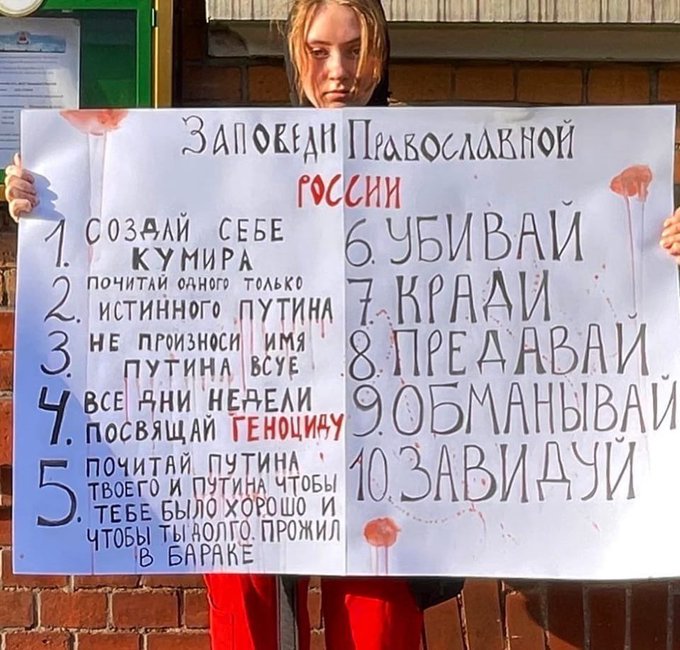 Заповеди Православной
России
1. Создай себе
кумира
2. Почитай одного только
истинного Путина
3. Не произноси имя
Путина всуе
4. Все дни недели
посвящай геноциду
5. Почитай Путина
твоего и Путина чтобы
тебе было хорошо и
чтобы ты долго прожил
в бараке
6. Убивай
7. Кради
8. Предавай
9. Обманывай
10. Завидуй